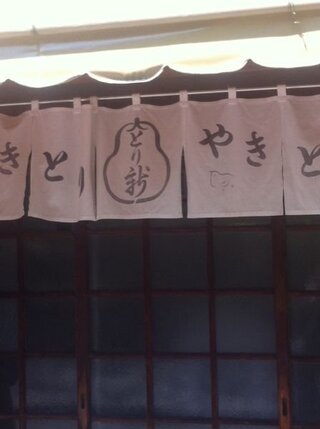 きとり
とり新
やきと